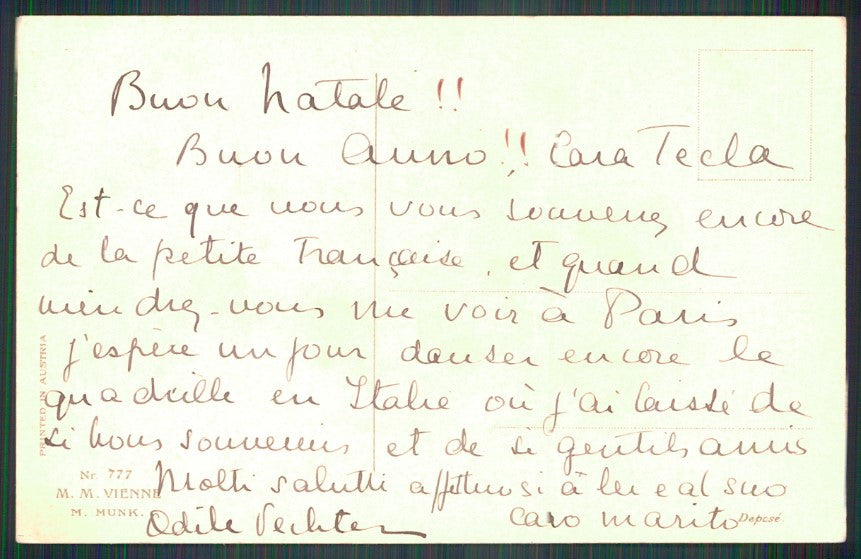 Buon Natale !!
Buon Anno !! Cara Tecla
Est-ce que vous vous souvenez encore
de la petite Française, et quand
viendrez-vous me voir à Paris
j'espère un jour danser encore le
quadrille en Italie où j'ai laissé de
si bons souvenirs et de si gentils amis
Molti salutti affettuosi à lei e al suo
caro marito
Odile
PRINTED IN AUSTRIA
Nr. 777
M. M. VIENNE
M. MUNK.
Deposé